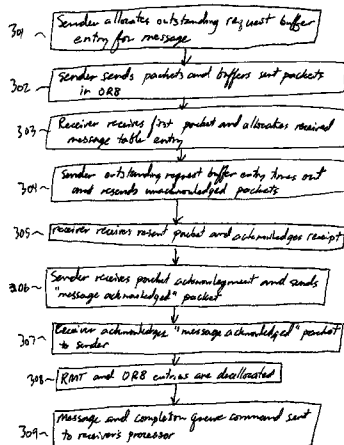 301
Sender allocates outstanding request buffer
entry for message
302
Sender sends packets and buffers sent packets
in ORB
303
Receiver receives first packet and allocates received
message table entry
304
Sender outstanding request buffer entry times out
and resends unacknowledged packets
305
receiver receives resent packet and acknowledges receipt
306
Sender receives packet acknowledgment and sends
"message acknowledged" packet
307
Receiver acknowledges "message acknowledged" packet
to sender
308
RMT and ORB entries are deallocated
309
Message and completion queue command sent
to receiver's processor